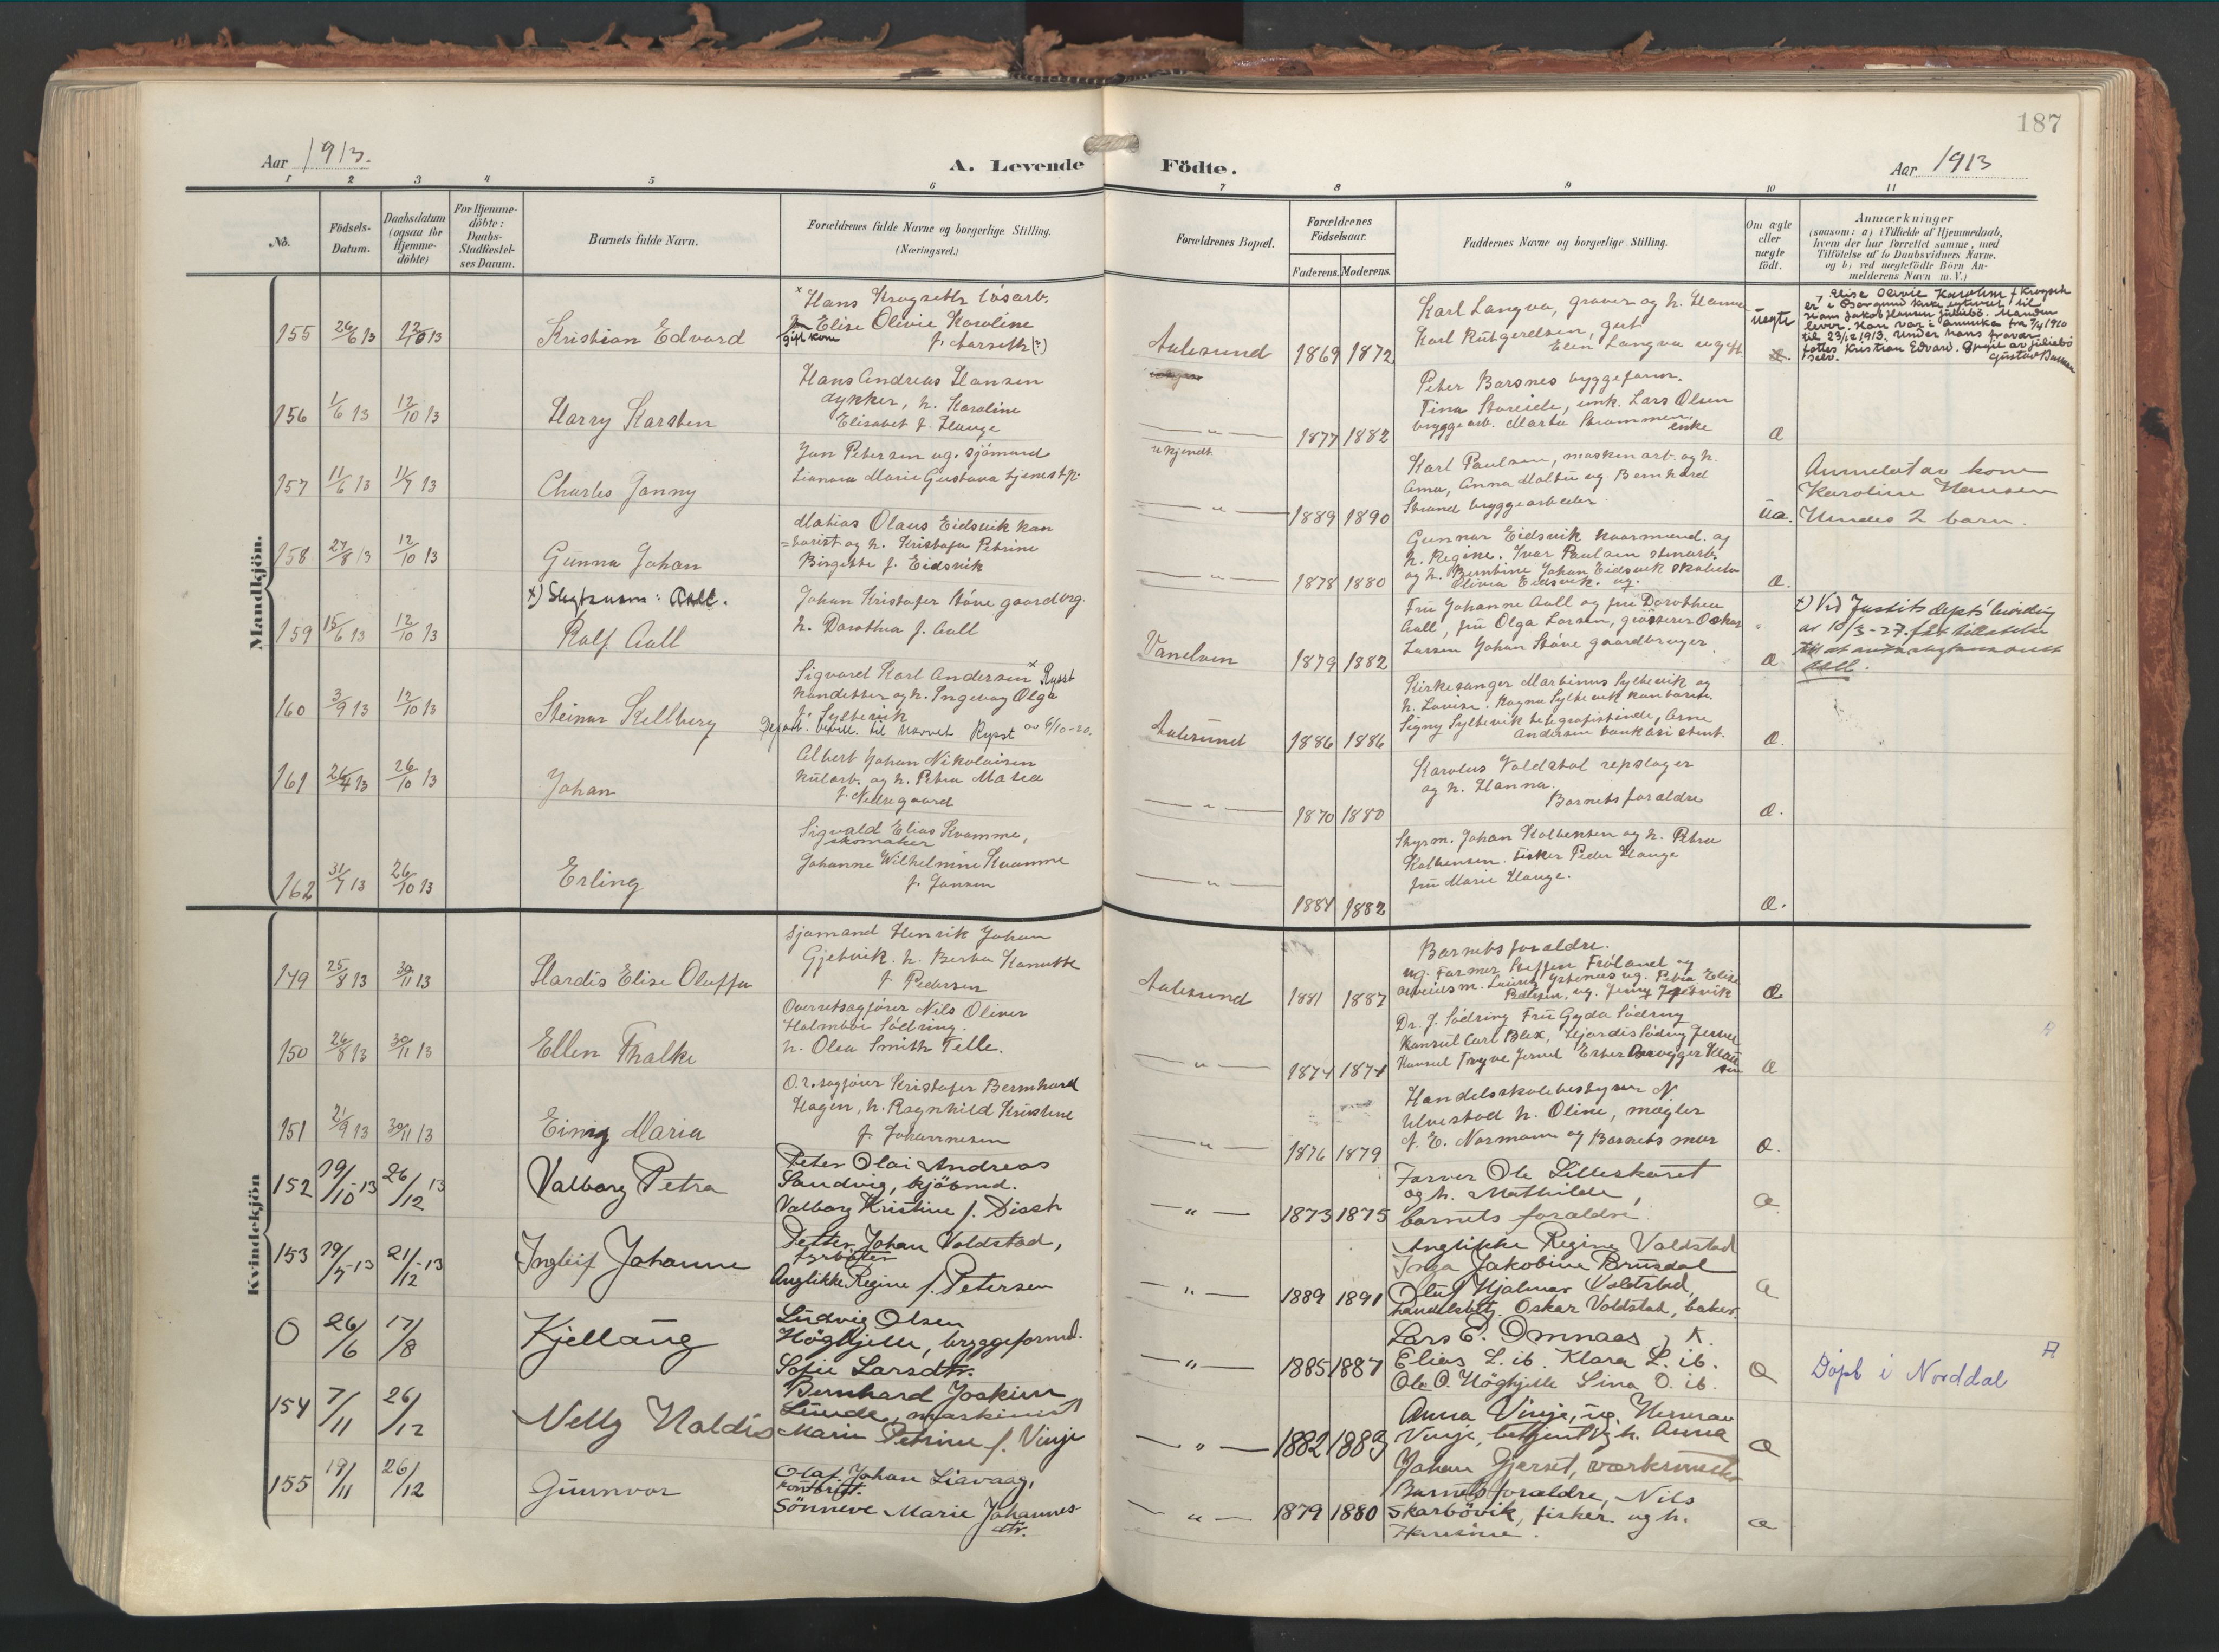 187
Aar 1913.
A. Levende Födte.
Aar 1913
1 2 3 4 5 6 7 8 9 10 11
No.
Födsels-
Datum.
Daabsdatum
(ogsaa for
Hjemme-
döbte)
For Hjemme-
döbte:
Daabs-
Stadfæstel-
ses Datum.
Barnets fulde Navn.
Forældrenes fulde Navne og borgerlige Stilling.
(Næringsvei.)
Forældrenes Bopæl.
Forældrenes
Födselsaar.
Faderens. Moderens.
Faddernes Navne og borgerlige Stilling.
Om ægte
eller
uægte
födt.
Anmærkninger
(saasom: a) i Tilfælde af Hjemmedaab,
hvem der har forrettet samme, med
Tilföielse af to Daabsvidners Navne.
og b) ved uægtefödte Börn An-
melderens Navn m. V.)
Mandkjön.
155 26/6 13 12/10 13
Kristian Edvard
Hans Krogseth løsarb.
Elise Olivie Karoline
gift kone
f. Aarseth (?)
Aalesund
1869 1872
Karl Langva, graver og h. Hanna
Karl Rutgerdsen, gut
Elin Langva ugift
uegte
Elise Olivie Karoline f. Krogseth
er i Borgund kirke egteviet til
Hans Jakob Hansen Juliebö. Manden
lever. Han var i Amerika fra 7/4 1910
til 23/12 1913. Under hans fravær
fødtes Kristian Edvard. Opgit av Juliebö
selv.
156 1/6 13 12/10 13
Harry Karsten
Hans Andreas Hansen
dykker, h. Karoline
Elisabet f. Hauge
— " —
1877 1882
Peter Barsnes byggeform.
Tina Storeide, enk. Lars Olsen
bryggearb. Marta Strømmen,
enke
æ
157 11/6 13 11/7 13
Charles Janny
Jan Petersen ug. sjömand
Leonora Marie Gustava tjenestp.
ukjendt
— " —
1889 1890
Karl Paulsen, maskinarb. og h.
Ama, Anna Molta ug. Bernhard
Strand bryggearbeider
uæ.
Anmeldt av kone
Karoline Hansen
Hendes 2 barn.
158 27/8 13 12/10 13
Gunnar Johan
Matias Olaus Eidsvik kan
=torist og h. Kristofa Petrine
Birgitte f. Eidsvik
— " —
1878 1880
Gunnar Eidsvik kaarmand. og
h. Regine. Ivar Paulsen stenarb.
og h. Berntine Johan Eidsvik
Olivia Eidsvik. ug.
æ.
x) Slegtsnavn: Aall.
159 15/6 13 12/10 13
Rolf Aall
Johan Kristofer Støve gaardbrg.
h. Dorothea f. Aall
Vanelven
1879 1882
Fru Johanne Aall og fru Dorothea
Aall, fru Olga Larsen, grosserer Oskar
Larsen Johan Støve gaardbruger.
æ
x) Ved Justitsdepts' bevilling
av 10/3-27. fåt tillatelse
til at anta slegtsnavnet
Aall.
160 3/9 13 12/10 13
Steinar Kellberg
Sigvard Karl Andersen x Rysst
Konditter og h. Ingeborg Olga
f. Syltevik
Depart. bevill. til navnet Rysst av 6/10-20.
Aalesund
1886 1886
Kirkesanger Martinus Syltevik og
h. Lovise. Ragna Syltevik kontorist.
Signy Syltevik telegrafistinde, Arne
Andersen bankassistent.
æ.
161 26/4 13 26/10 13
Johan
Albert Johan Nikolaisen
kularb. og h. Petra Matea
f. Nedregaard
— " —
1870 1880
Karolus Voldstal repslager
og h. Hanna.
Barnets foraldre
æ.
162 31/7 13 26/10 13
Erling
Sigvald Elias Kvamme,
skomaker
Johanne Wilhelmine Kvamme
f. Jansen
— " —
1884 1882
Styrm. Johan Kolbensen og h. Petra
Kolbensen. fisker Peder Hauge
fru Marie Hauge.
æ.
Kvindekjön
149 25/8 13 30/11 13
Hardis Elise Oluffa
Sjømand Henrik Johan
Gjetvik. h. Berta Kanutte
f. Pedersen
Aalesund
1881 1887
Barnets foraldre.
ug. Farmer Steffen Fröland og
Pedersen, ug. Jenny Gjetvik
æ
150 26/8 13 30/11 13
Ellen Thalke
Overretsagfører Nils Oliver
Holmboe Södring.
h. Olea Smith Telle.
— " —
1874 1874
Dr. J. Södring Fru Gyda Södring
Konsul Carl Blix, Hjördis Södring Jervel
Konsul Trygve Jervel
æ
151 2/9 13 30/11 13
Einig Maria
O.r.sagfører Kristofer Bernhard
Hagen, h. Ragnhild Kristine
f. Johannesen
— " —
1876 1879
Handelsskolebestyrer N.
Ulvestad h. Oline, mægler
J. E. Normann og Barnets mor
æ.
152 19/10-13 26/12 13
Valborg Petra
Peter Olai Andreas
Sandvig, kjöbmd.
Valborg Kristine f. Disch
— " —
1873 1875
Farver Ole Lilleskaret
og h. Mathilde,
barnets foraldre.
æ
153 19/7-13 21/12-13
Ingleif Johanne
Petter Johan Voldstad,
fyrböter
Anglikke Regine f. Petersen
— " —
1889 1891
Anglikke Regine Voldstad
Inga Jakobine Brusdal
Oluf Hjalmar Voldstad,
handelsbetj. Oskar Voldstad, baker.
æ
0 26/6 17/8
Kjellaug
Ludvig Olsen
Höghjelle, bryggeformd.
Sofie Larsdtr.
— " —
1885 1887
Lars E. Omnaas, K.
Elias L. ib. Klara L. ib.
Ole O. Höghjelle Lina O. ib.
æ
Döpt i Norddal
154 7/11 26/12
Nelly Haldis
Bernhard Joakim
Lunde, maskinist
Marie Petrine f. Vinje
— " —
1882 1883
Anna Vinje, ug. Herman
Vinje, betjent og h. Anna
Johan Gjerset, værksmester
æ
155 19/11 26/12
Gunnvor
Olaf Johan Liavaag,
kontorist.
Sönneve Marie Johannes-
dtr.
— " —
1879 1880
Barnets foraldre, Nils
Skarbövik, fisker og h.
æ